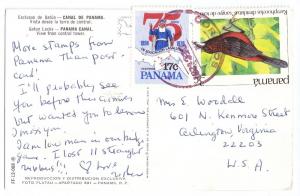 Esclusas de Gatún — CANAL DE PANAMA.
Vista desde la torre de control.
Gatun Locks — PANAMA CANAL.
View from control tower.
More stamps from
Panama than post
card!
I'll probably see
you before this arrives
but wanted you to know
I miss you.
I am low man in our bridge
game. I lost 11 straight
rubbers!!! Love
REPRODUCCION Y DISTRIBUCION EXCLUSIVA
FOTO FLATAU - APARTADO 891 - PANAMA, R. P.
75
17c
PANAMA
panamá
Mrs E Wordell
601 N. Kenmore Street
Arlington, Virginia
22203
U.S.A.